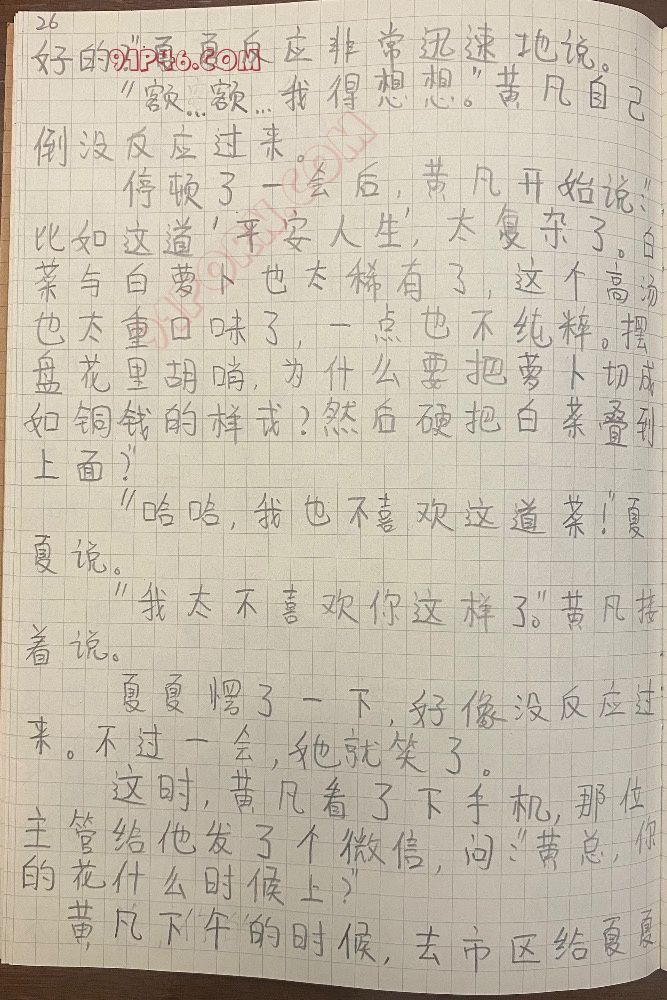 26
好的。"夏夏反应非常迅速地说。
"额…额…我得想想。"黄凡自己
倒没反应过来。
停顿了一会后，黄凡开始说："
比如这道'平安人生'，太复杂了。白
菜与白萝卜也太稀有了，这个高汤
也太重口味了，一点也不纯粹。摆
盘花里胡哨，为什么要把萝卜切成
如铜钱的样式？然后硬把白菜叠到
上面？"
"哈哈，我也不喜欢这道菜！"夏
夏说。
"我太不喜欢你这样了。"黄凡接
着说。
夏夏愣了一下，好像没反应过
来。不过一会，她就笑了。
这时，黄凡看了下手机，那位
主管给他发了个微信，问："黄总，你
的花什么时候上？"
黄凡下午的时候，去市区给夏夏